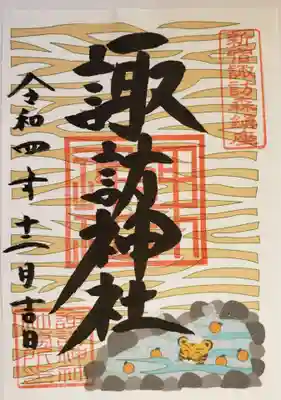 新宿諏訪森鎮座
諏訪神社
令和四年十二月吉日